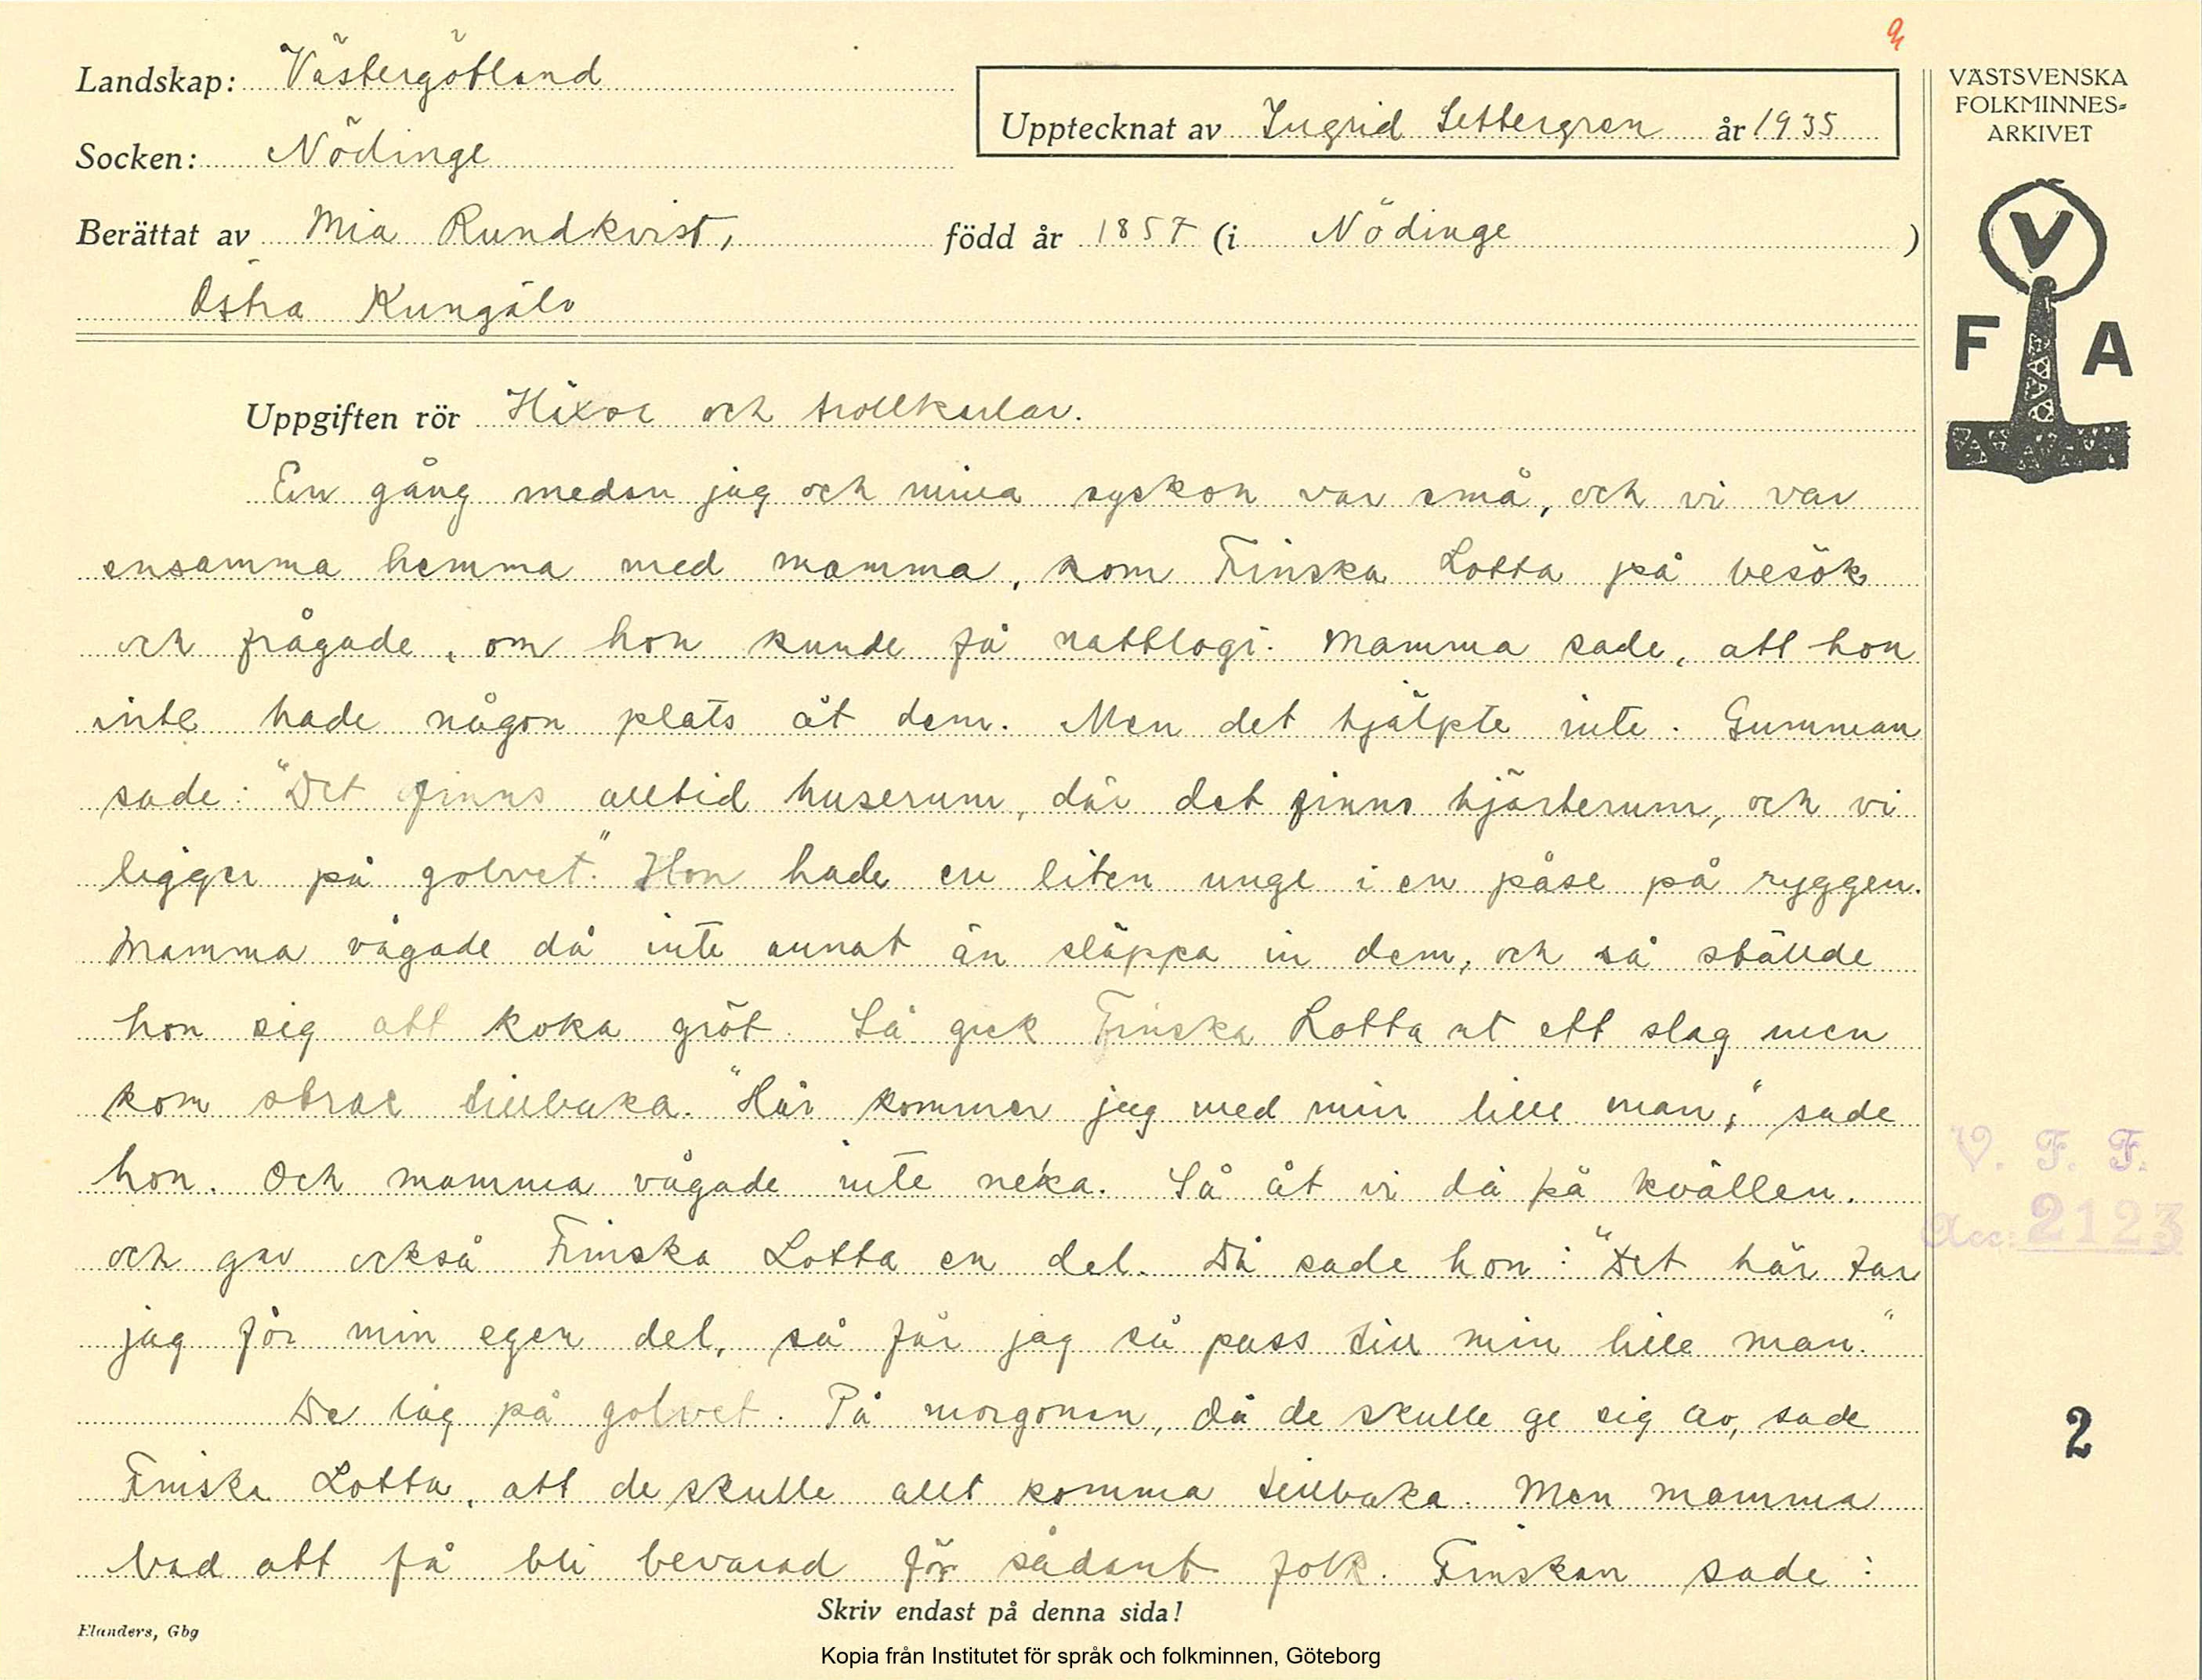 Landskap: Västergötland
Socken: Nödinge
Upptecknat av Ingrid Settergren år 1935
Berättat av Mia Rundkvist, född år 1857 (i Nödinge )
Östra Kungälv
VÄSTSVENSKA
FOLKMINNES-
ARKIVET
V
F A
Uppgiften rör Häxor och trollkarlar.
En gång medan jag och mina syskon var små, och vi var
ensamma hemma med mamma, kom Finska Lotta på besök
och frågade, om hon kunde få nattlogi. Mamma sade, att hon
inte hade någon plats åt dem. Men det hjälpte inte. Gumman
sade: "Det finns alltid huserum, där det finns hjärterum, och vi
ligger på golvet." Hon hade en liten unge i en påse på ryggen.
Mamma vågade då inte annat än släppa in dem, och så ställde
hon sig att koka gröt. Så gick Finska Lotta ut ett slag men
kom strax tillbaka. "Här kommer jag med min lille man," sade
hon. Och mamma vågade inte neka. Så åt vi då på kvällen.
och gav också Finska Lotta en del. Då sade hon: "Det här tar
jag för min egen del, så får jag så pass till min lille man."
De låg på golvet. På morgonen, då de skulle ge sig av, sade
Finska Lotta, att de skulle allt komma tillbaka. Men mamma
bad att få bli bevarad för sådant folk. Finskan sade:
V. F. F.
Acc. 2123
2
Skriv endast på denna sida!
Elanders, Gbg
Kopia från Institutet för språk och folkminnen, Göteborg